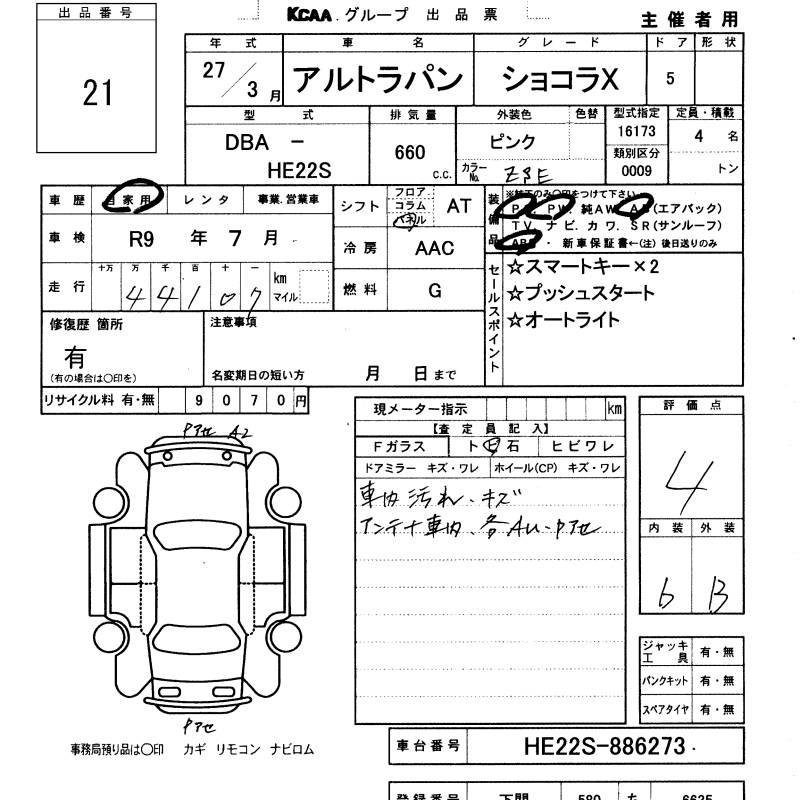 出品番号
21
KCAA.グループ 出品票
主催者用
年式 車名 グレード ドア 形状
27/3月 アルトラパン ショコラX 5
型式 排気量 外装色 色替 型式指定 定員・積載
DBA - HE22S 660 c.c. ピンク 16173 4名
カラーNo. 類別区分 0009 トン
車歴 自家用 レンタ 事業.営業車
シフト フロア コラム パネル AT
装備品 ※純正のみ○印をつけて下さい
PS. PW. 純AW. AB(エアバック)
TV. ナビ. カワ. SR(サンルーフ)
ABS・新車保証書←(注)後日送りのみ
車検 R9年 7月
冷房 AAC
走行 十万 万 千 百 十 一 km マイル
44107
燃料 G
セールスポイント
☆スマートキー×2
☆プッシュスタート
☆オートライト
修復歴 箇所
有
(有の場合は○印を)
注意事項
名変期日の短い方 月 日まで
リサイクル料 有・無 9070円
現メーター指示 km
【査定員記入】
Fガラス ト ビ 石 ヒビワレ
ドアミラー キズ・ワレ ホイール(CP) キズ・ワレ
車内汚れ・キズ
アンテナ車内、各AU・Pアセ
評価点
4
内装 外装
6 B
Pアセ A2
Pアセ
ジャッキ工具 有・無
パンクキット 有・無
スペアタイヤ 有・無
事務局預り品は○印 カギ リモコン ナビロム
車台番号 HE22S-886273
登録番号 下関 580 6625